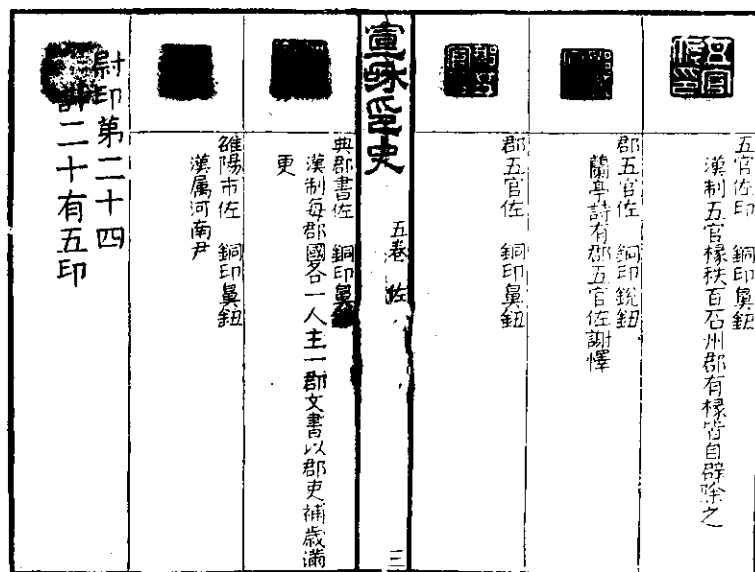 五官佐印　銅印鼻鈕
漢制五官椽秩百石州郡有椽皆自辟除之
郡五官佐　銅印銳鈕
蘭亭詩有郡五官佐謝懌
郡五官佐　銅印鼻鈕
宣和印史
五卷　佐
三
典郡書佐　銅印鼻鈕
漢制每郡國各一人主一郡文書以郡吏補歲滿
更
雒陽市佐　銅印鼻鈕
漢属河南尹
尉印第二十四
計二十有五印